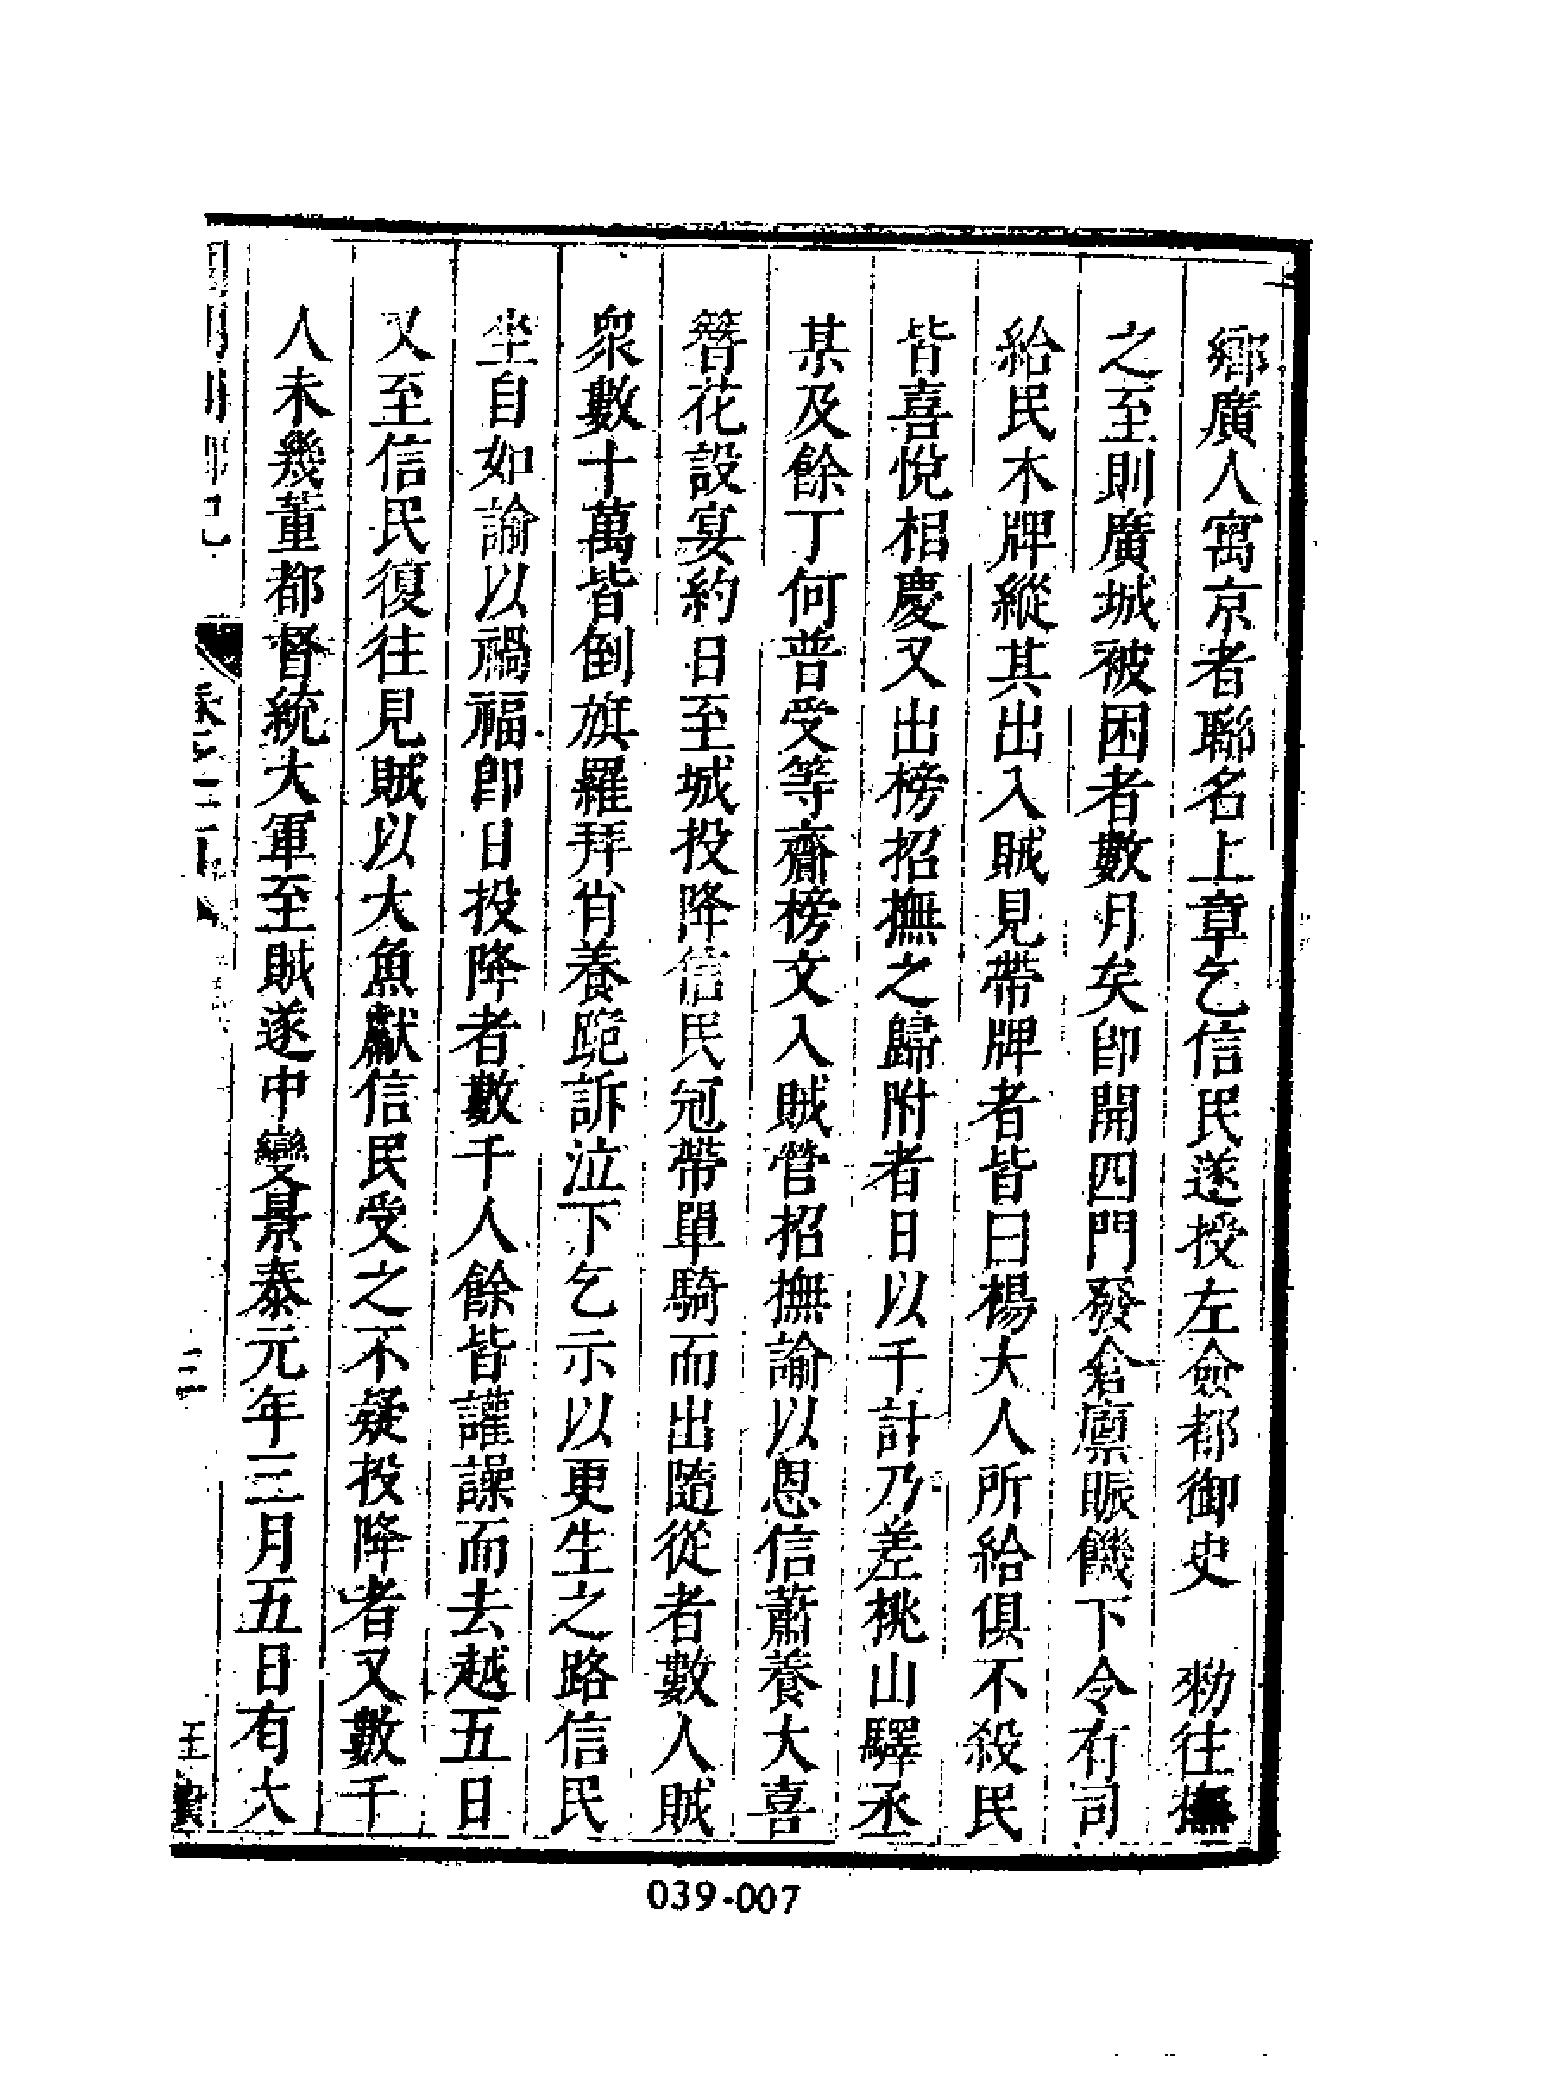 鄉廣人寓京者聯名上章乞信民遂授左僉都御史　勑往撫
之至則廣城被困者數月矣卽開四門發倉廩賑饑下令有司
給民木牌縱其出入賊見帶牌者皆曰楊大人所給俱不殺民
皆喜悅相慶又出榜招撫之歸附者日以千計乃差桃山驛丞
某及餘丁何普受等齎榜文入賊營招撫諭以恩信蕭養大喜
簪花設宴約日至城投降信民冠帶單騎而出隨從者數人賊
衆數十萬皆倒旗羅拜肖養跪訴泣下乞示以更生之路信民
坐自如諭以禍福卽日投降者數千人餘皆讙譟而去越五日
又至信民復往見賊以大魚獻信民受之不疑投降者又數千
人未幾董都督統大軍至賊遂中變景泰元年三月五日有大
三
王
039-007